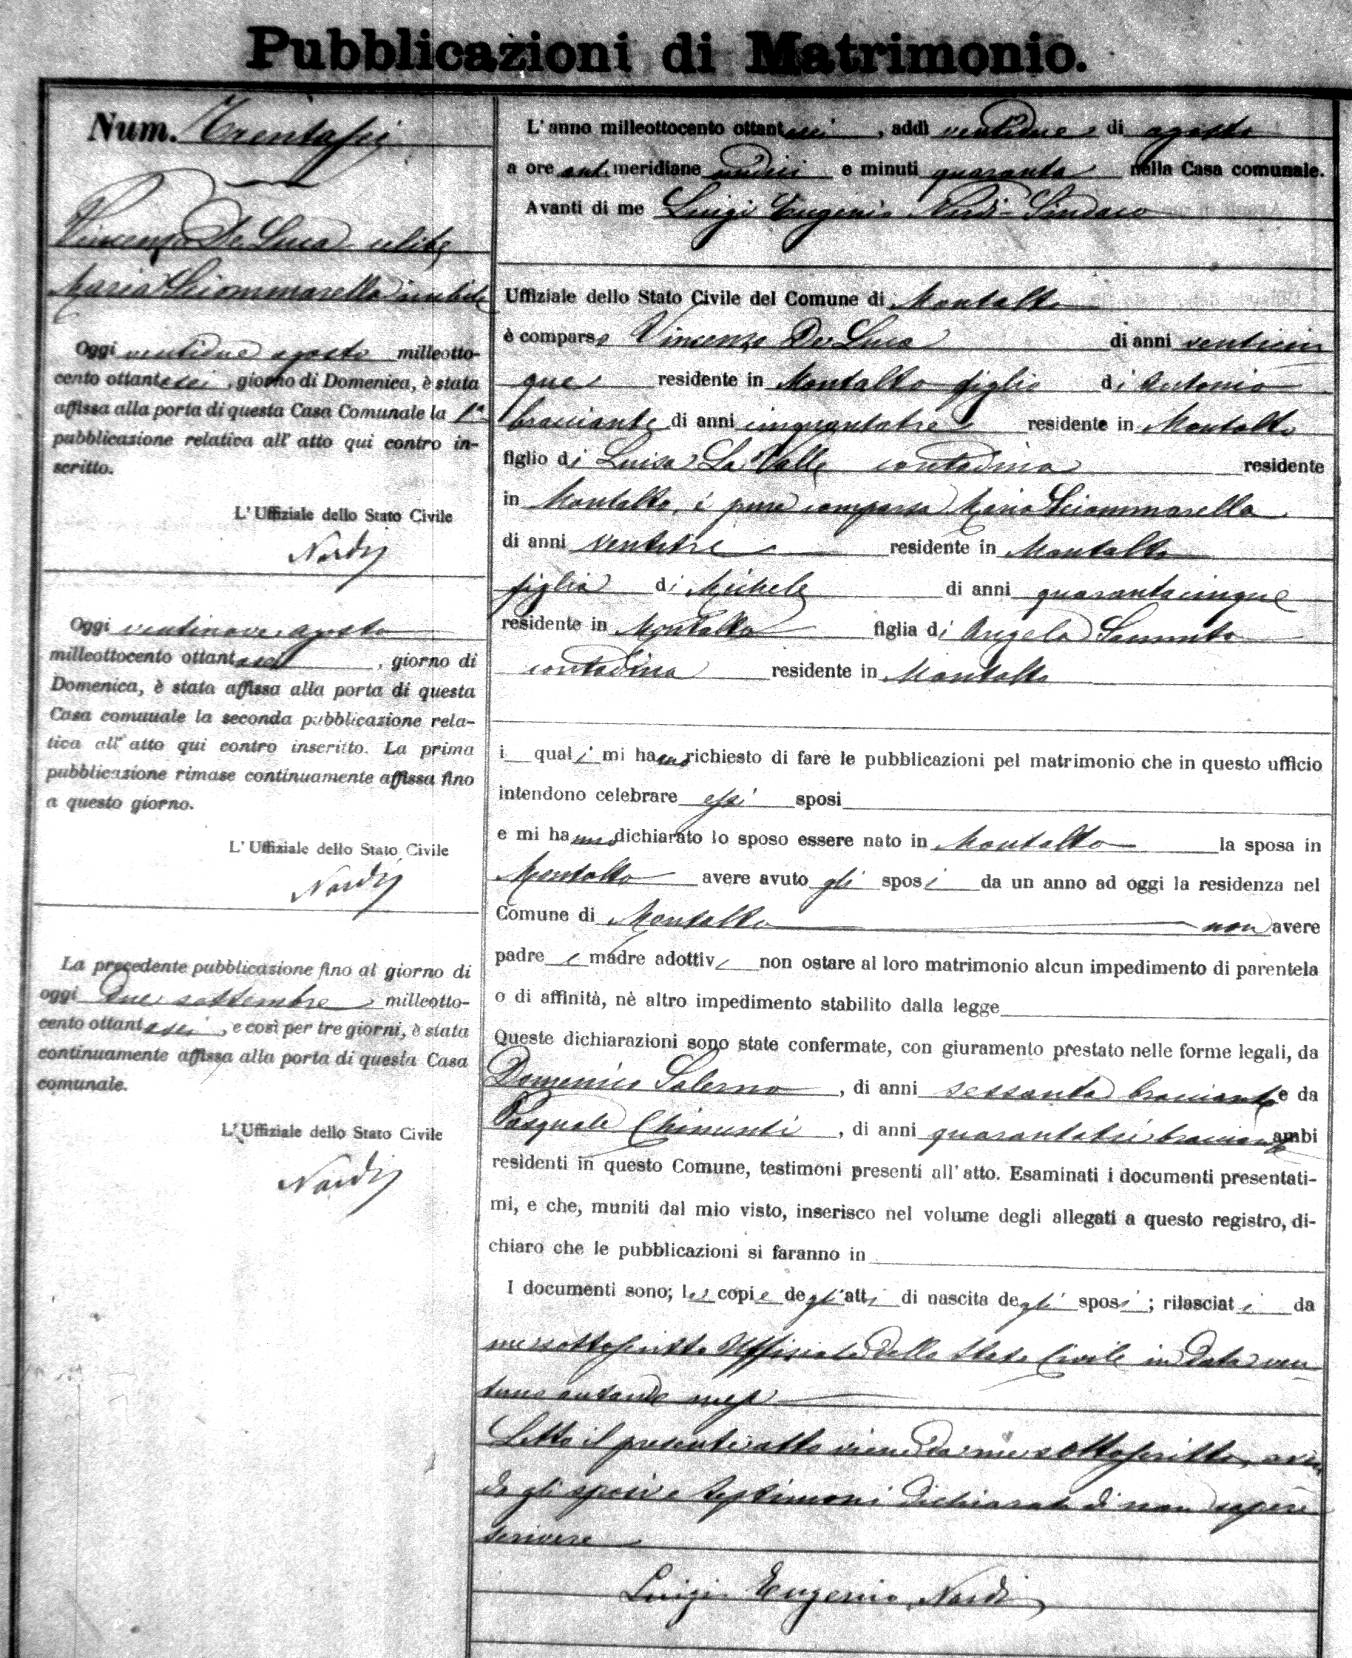 Pubblicazioni di Matrimonio.
Num. Trentasei
Vincenzo De Luca celibe
Maria Sciommarella nubile
Oggi ventidue agosto milleotto-
cento ottantasei, giorno di Domenica, è stata
affissa alla porta di questa Casa Comunale la 1ª
pubblicazione relativa all' atto qui contro in-
scritto.
L' Uffiziale dello Stato Civile
Nardi
Oggi ventinove agosto
milleottocento ottantasei, giorno di
Domenica, è stata affissa alla porta di questa
Casa comunale la seconda pubblicazione rela-
tiva all' atto qui contro inscritto. La prima
pubblicazione rimase continuamente affissa fino
a questo giorno.
L' Uffiziale dello Stato Civile
Nardi
La precedente pubblicazione fino al giorno di
oggi due settembre milleotto-
cento ottantasei, e così per tre giorni, è stata
continuamente affissa alla porta di questa Casa
comunale.
L' Uffiziale dello Stato Civile
Nardi
L' anno milleottocento ottantasei, addì ventidue di agosto
a ore anti meridiane undici e minuti quaranta nella Casa comunale.
Avanti di me Luigi Eugenio Nardi Sindaco
Uffiziale dello Stato Civile del Comune di Montalto
è comparso Vincenzo De Luca di anni venticin
que residente in Montalto figlio di Antonio
bracciante di anni cinquantatre residente in Montalto
figlio di Luisa La Valle contadina residente
in Montalto, è pure comparsa Maria Sciommarella
di anni ventitre residente in Montalto
figlia di Michele di anni quarantacinque
residente in Montalto figlia di Angela Sannuto
contadina residente in Montalto
i quali mi hanno richiesto di fare le pubblicazioni pel matrimonio che in questo ufficio
intendono celebrare essi sposi
e mi hanno dichiarato lo sposo essere nato in Montalto la sposa in
Montalto avere avuto gli sposi da un anno ad oggi la residenza nel
Comune di Montalto non avere
padre e madre adottivi non ostare al loro matrimonio alcun impedimento di parentela
o di affinità, nè altro impedimento stabilito dalla legge
Queste dichiarazioni sono state confermate, con giuramento prestato nelle forme legali, da
Domenico Salerno, di anni sessanta bracciante e da
Pasquale Chimenti, di anni quarantatrè bracciante ambi
residenti in questo Comune, testimoni presenti all' atto. Esaminati i documenti presentati-
mi, e che, muniti dal mio visto, inserisco nel volume degli allegati a questo registro, di-
chiaro che le pubblicazioni si faranno in
I documenti sono; le copie degli atti di nascita degli sposi; rilasciati da
me sottoscritto Uffiziale dello Stato Civile in data ven
tuno andante mese
Letto il presente atto viene da me sottoscritto, aven
do gli sposi e testimoni dichiarato di non sapere
scrivere
Luigi Eugenio Nardi